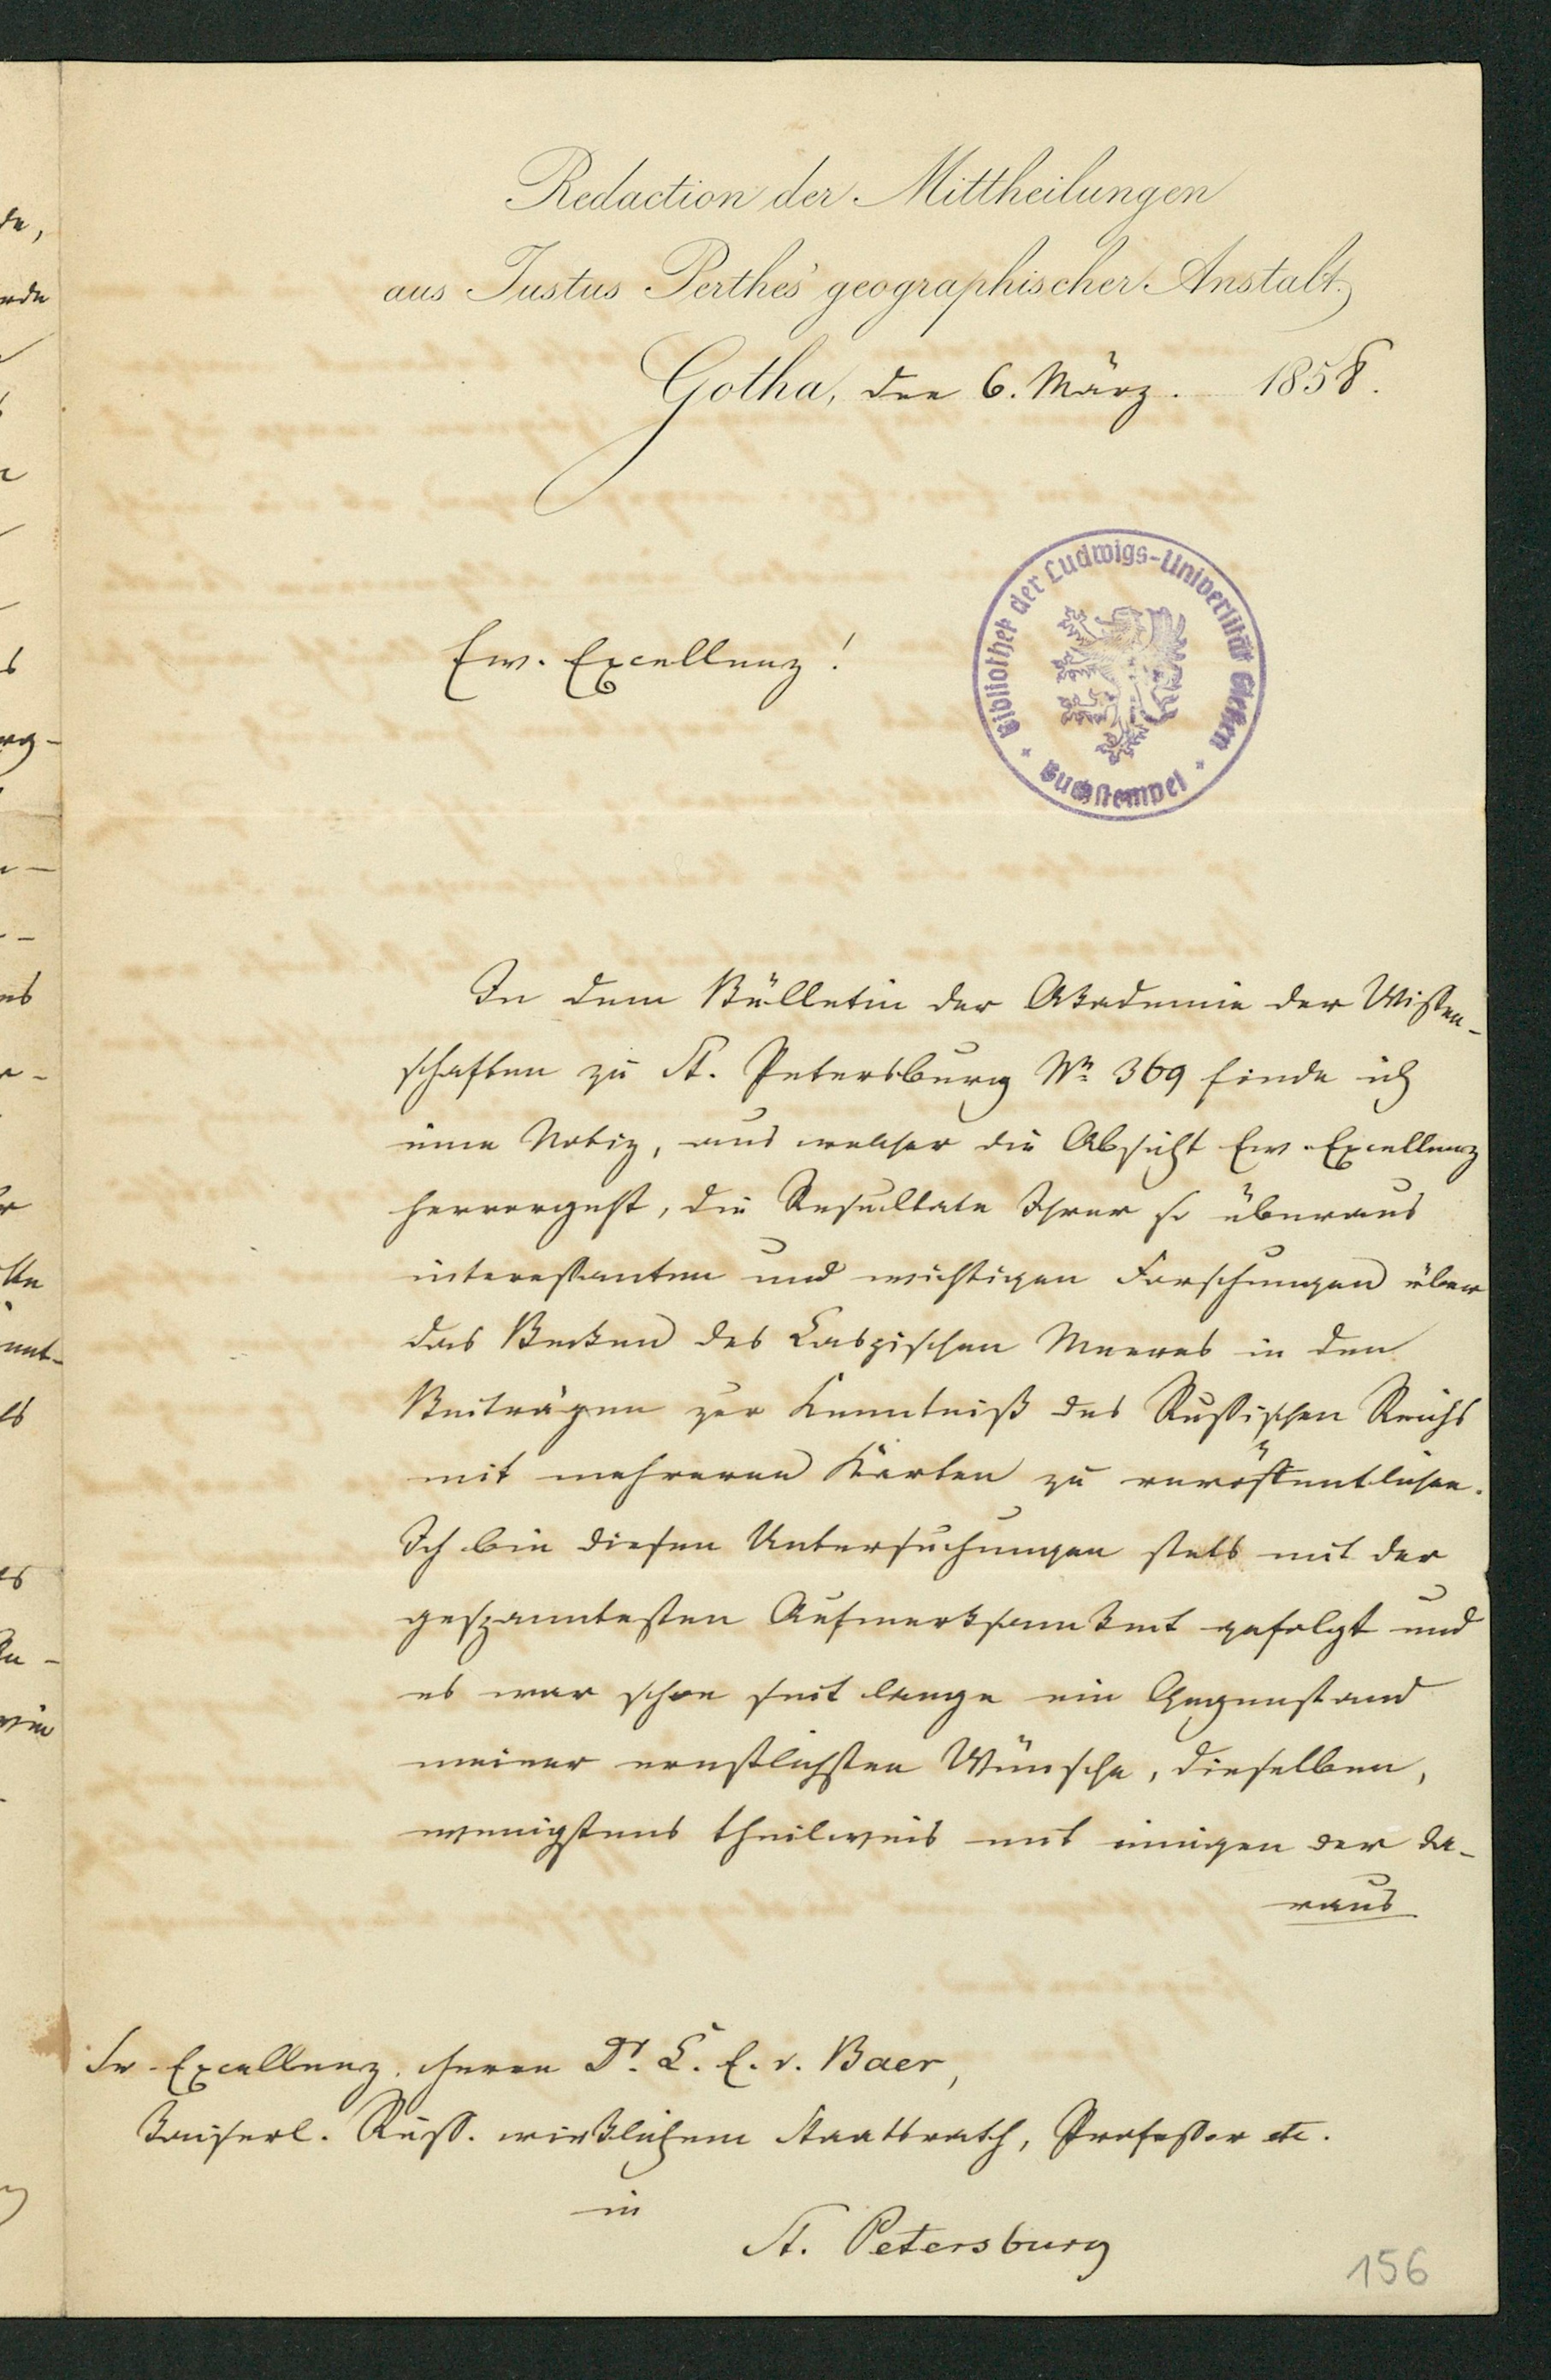 Redaction der Mittheilungen
aus Justus Perthes' geographischer Anstalt.
Gotha, den 6. März. 1858.
Bibliothek der Ludwigs-Universität Gießen
Buchstempel
Ew. Excellenz!
In dem Bülletin der Akademie der Wissen-
schaften zu St. Petersburg No 369 finde ich
eine Notiz, aus welcher die Absicht Ew. Excellenz
hervorgeht, die Resultate Ihrer so überaus
interessanten und wichtigen Forschungen über
das Becken des Caspischen Meeres in den
Beiträgen zur Kenntniß des Russischen Reichs
mit mehreren Karten zu veröffentlichen.
Ich bin diesen Untersuchungen stets mit der
gespanntesten Aufmerksamkeit gefolgt und
es war schon seit lange ein Gegenstand
meiner ernstlichsten Wünsche, dieselben,
wenigstens theilweis mit einigen der da-
raus
Sr. Excellenz. Herrn Dr. C. E. v. Baer,
Kaiserl. Russ. wirklichem Staatsrath, Professor etc.
in
St. Petersburg
156